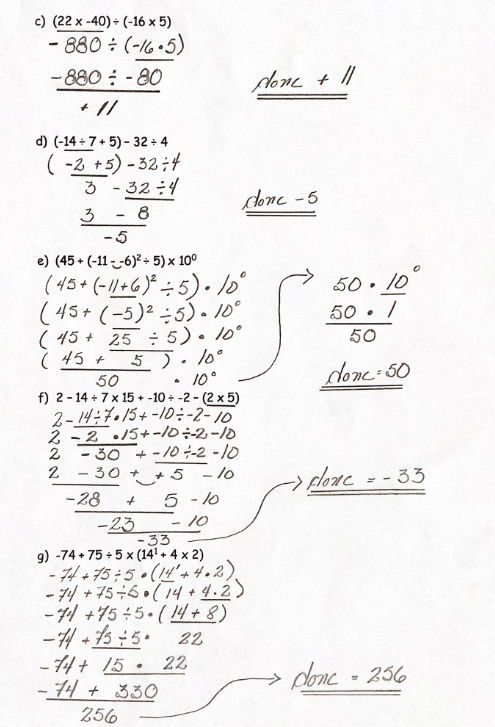 c) (22 x -40) ÷ (-16 x 5)
-880 ÷ (-16 • 5)
-880 ÷ -80
+ 11
donc + 11
d) (-14 ÷ 7 + 5) - 32 ÷ 4
( -2 + 5) - 32 ÷ 4
3 - 32 ÷ 4
3 - 8
-5
donc -5
e) (45 + (-11 - -6)² ÷ 5) x 10⁰
(45 + (-11+6)² ÷ 5) • 10⁰
(45 + (-5)² ÷ 5) • 10⁰
(45 + 25 ÷ 5) • 10⁰
( 45 + 5 ) • 10⁰
50 • 10⁰
50 • 10⁰
50 • 1
50
donc = 50
f) 2 - 14 ÷ 7 x 15 + -10 ÷ -2 - (2 x 5)
2 - 14 ÷ 7 • 15 + -10 ÷ -2 - 10
2 - 2 • 15 + -10 ÷ -2 - 10
2 - 30 + -10 ÷ -2 - 10
2 - 30 + + 5 - 10
-28 + 5 - 10
-23 - 10
-33
donc = - 33
g) -74 + 75 ÷ 5 x (14¹ + 4 x 2)
-74 + 75 ÷ 5 • (14¹ + 4 • 2)
-74 + 75 ÷ 5 • (14 + 4 • 2)
-74 + 75 ÷ 5 • (14 + 8)
-74 + 75 ÷ 5 • 22
-74 + 15 • 22
-74 + 330
256
donc = 256